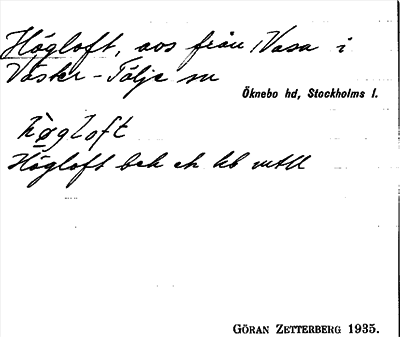 Högloft, avs från Vasa i
Väster-Tälje sn
Öknebo hd, Stockholms l.
hø̀gloft
Högloft bek ek hb mtll
GÖRAN ZETTERBERG 1935.